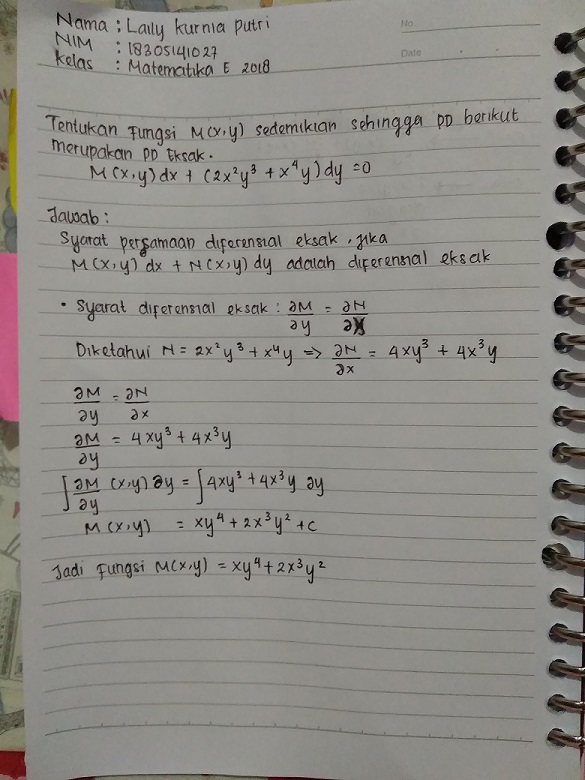 Nama : Laily Kurnia Putri
No.
NIM : 18305141027
Date
Kelas : Matematika E 2018
Tentukan Fungsi M(x,y) sedemikian sehingga PD berikut
merupakan PD Eksak.
M(x,y) dx + (2x²y³ + x⁴y) dy = 0
Jawab :
Syarat persamaan diferensial eksak, jika
M(x,y) dx + N(x,y) dy adalah diferensial eksak
• Syarat diferensial eksak : ∂M/∂y = ∂N/∂x
Diketahui N = 2x²y³ + x⁴y => ∂N/∂x = 4xy³ + 4x³y
∂M/∂y = ∂N/∂x
∂M/∂y = 4xy³ + 4x³y
∫ ∂M/∂y (x,y) ∂y = ∫ 4xy³ + 4x³y ∂y
M(x,y) = xy⁴ + 2x³y² + c
Jadi Fungsi M(x,y) = xy⁴ + 2x³y²